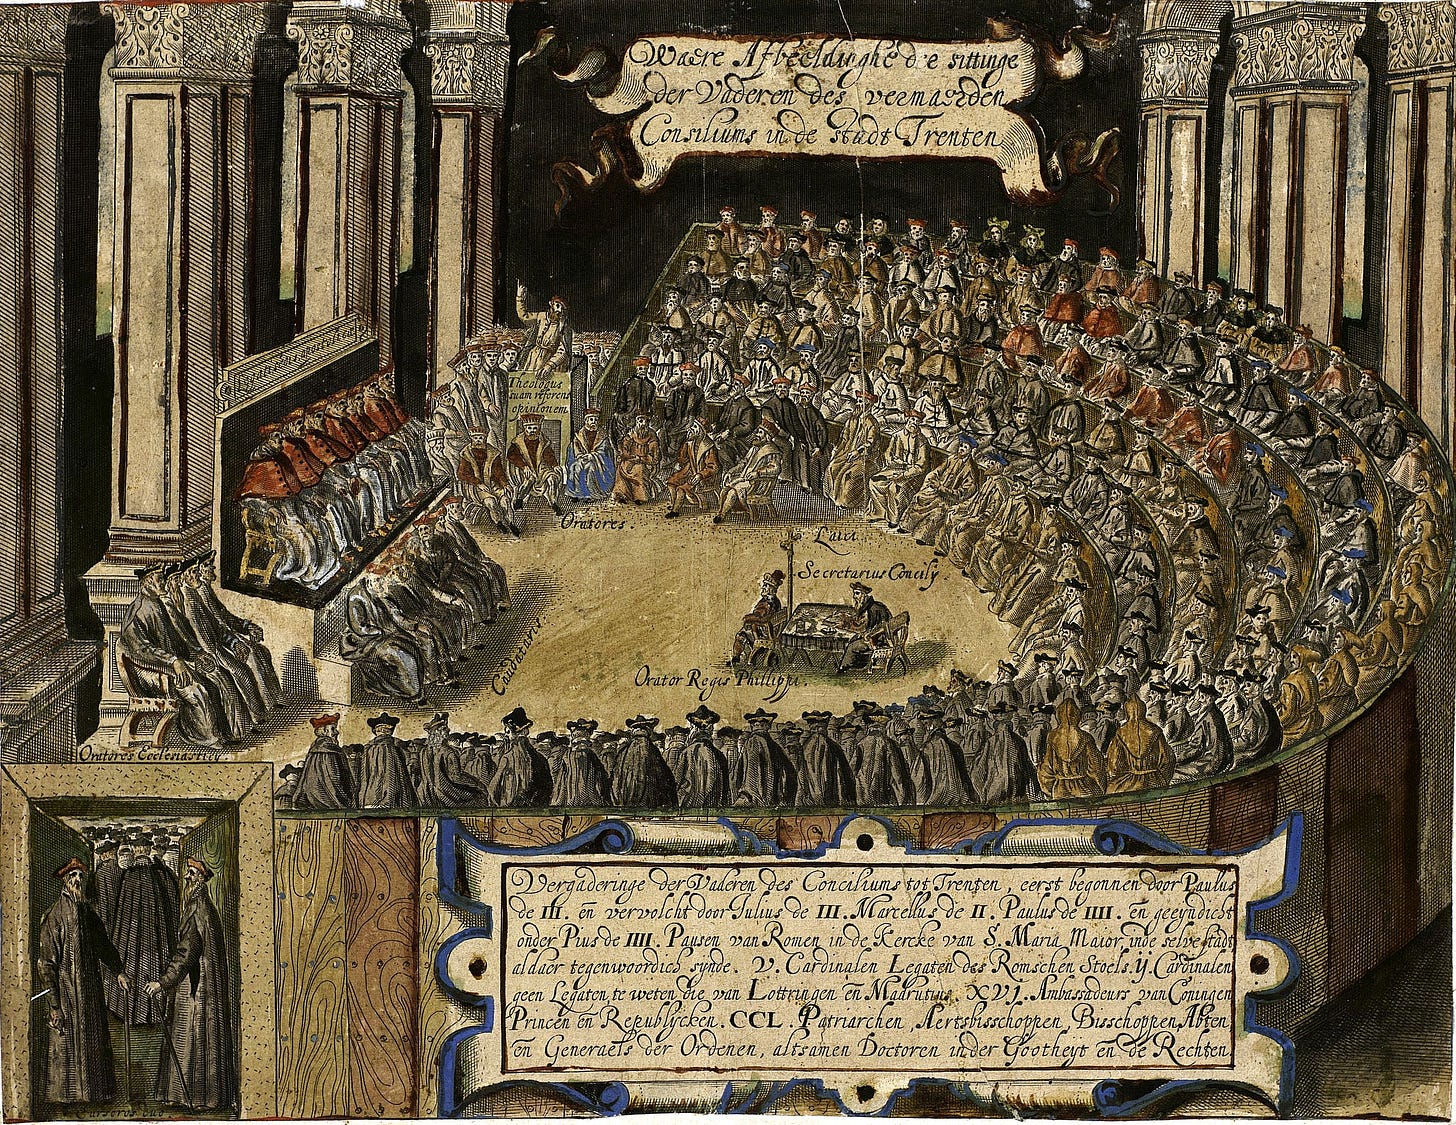 Waere Afbeeldinghe d'e sittinge
der Vaderen des vermaerden
Consiliums in de stadt Trenten
Theologus
suam referens
opinionem
Oratores.
Laici.
Secretarius Concilÿ.
Orator Regis Phillippi.
Oratores Ecclesiastici.
Vergaderinge der Vaderen des Conciliums tot Trenten, eerst begonnen door Paulus
de III. eñ vervolcht door Julius de III. Marcellus de II. Paulus de IIII. eñ geeyndicht
onder Pius de IIII. Pausen van Romen in de Kercke van S. Maria Maior, inde selve stadt
aldaer tegenwoordich synde. V. Cardinalen Legaten des Romschen Stoels. ij. Cardinalen
geen Legaten, te weten die van Lottringen eñ Maarutius. XVJ. Ambassadeurs van Coningen
Princen eñ Republÿcken. CCL. Patriarchen, Aertsbisschoppen, Bisschoppen, Abten,
eñ Generaels der Ordenen, altsamen Doctoren inder Gootheyt eñ de Rechten.